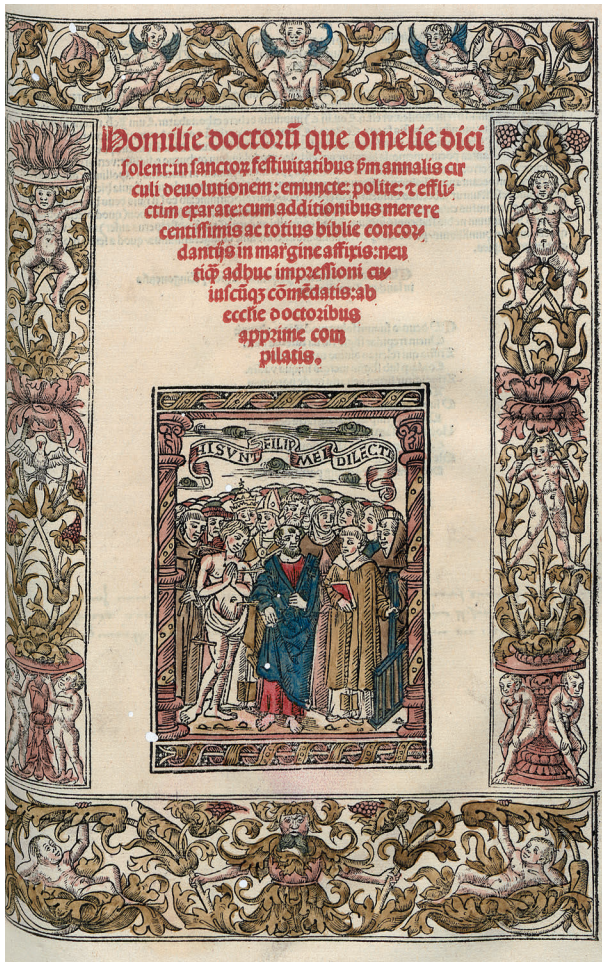 Homilie doctorū que omelie dici
solent: in sanctoꝝ festiuitatibus ẜm annalis cir
culi deuolutionem: emuncte: polite: ⁊ effli-
ctim exarate: cum additionibus mere re
centissimis ac totius biblie concor-
dantijs in margine affixis: neu
tiꝙ adhuc impressioni cu-
iuscūqꝫ cōmēdatis: ab
ecclīe doctoribus
apprime com
pilatis.
HI SVNT FILII MEI DILECTI